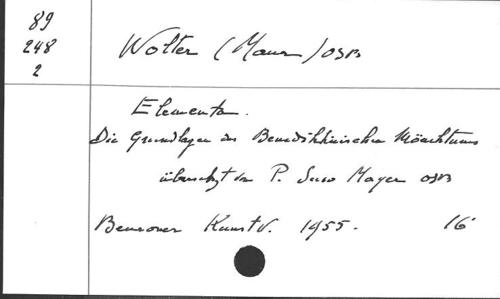 89
248
2
Wolter (Maur) OSB
Elementa.
Die Grundlagen des Benediktinischen Mönchtums
übersetzt von P. Suso Mayer OSB
Beuroner Kunstv. 1955. 16°